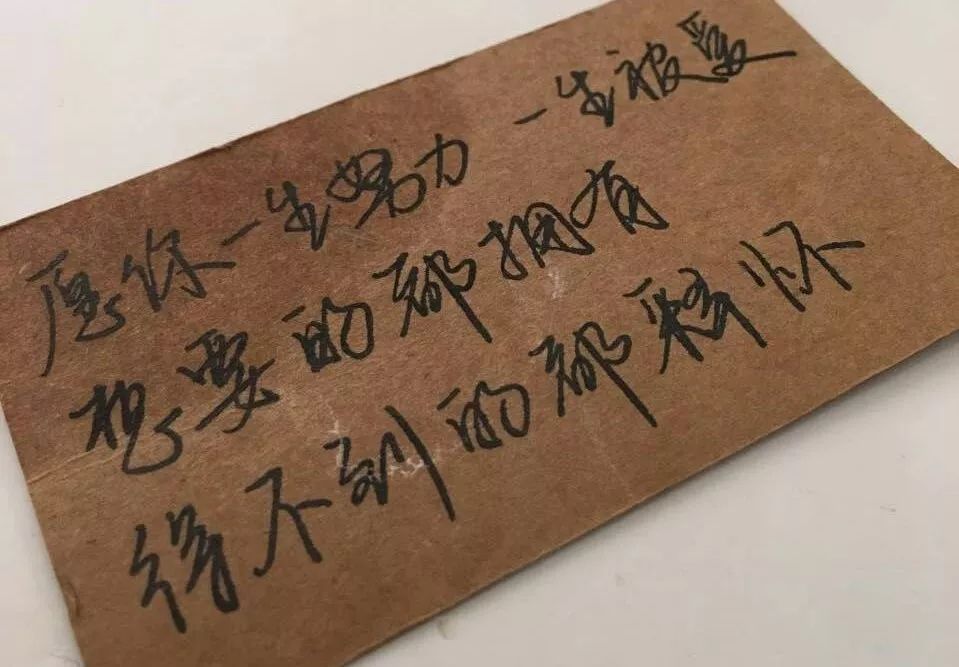 愿你一生努力 一生被爱
想要的都拥有
得不到的都释怀